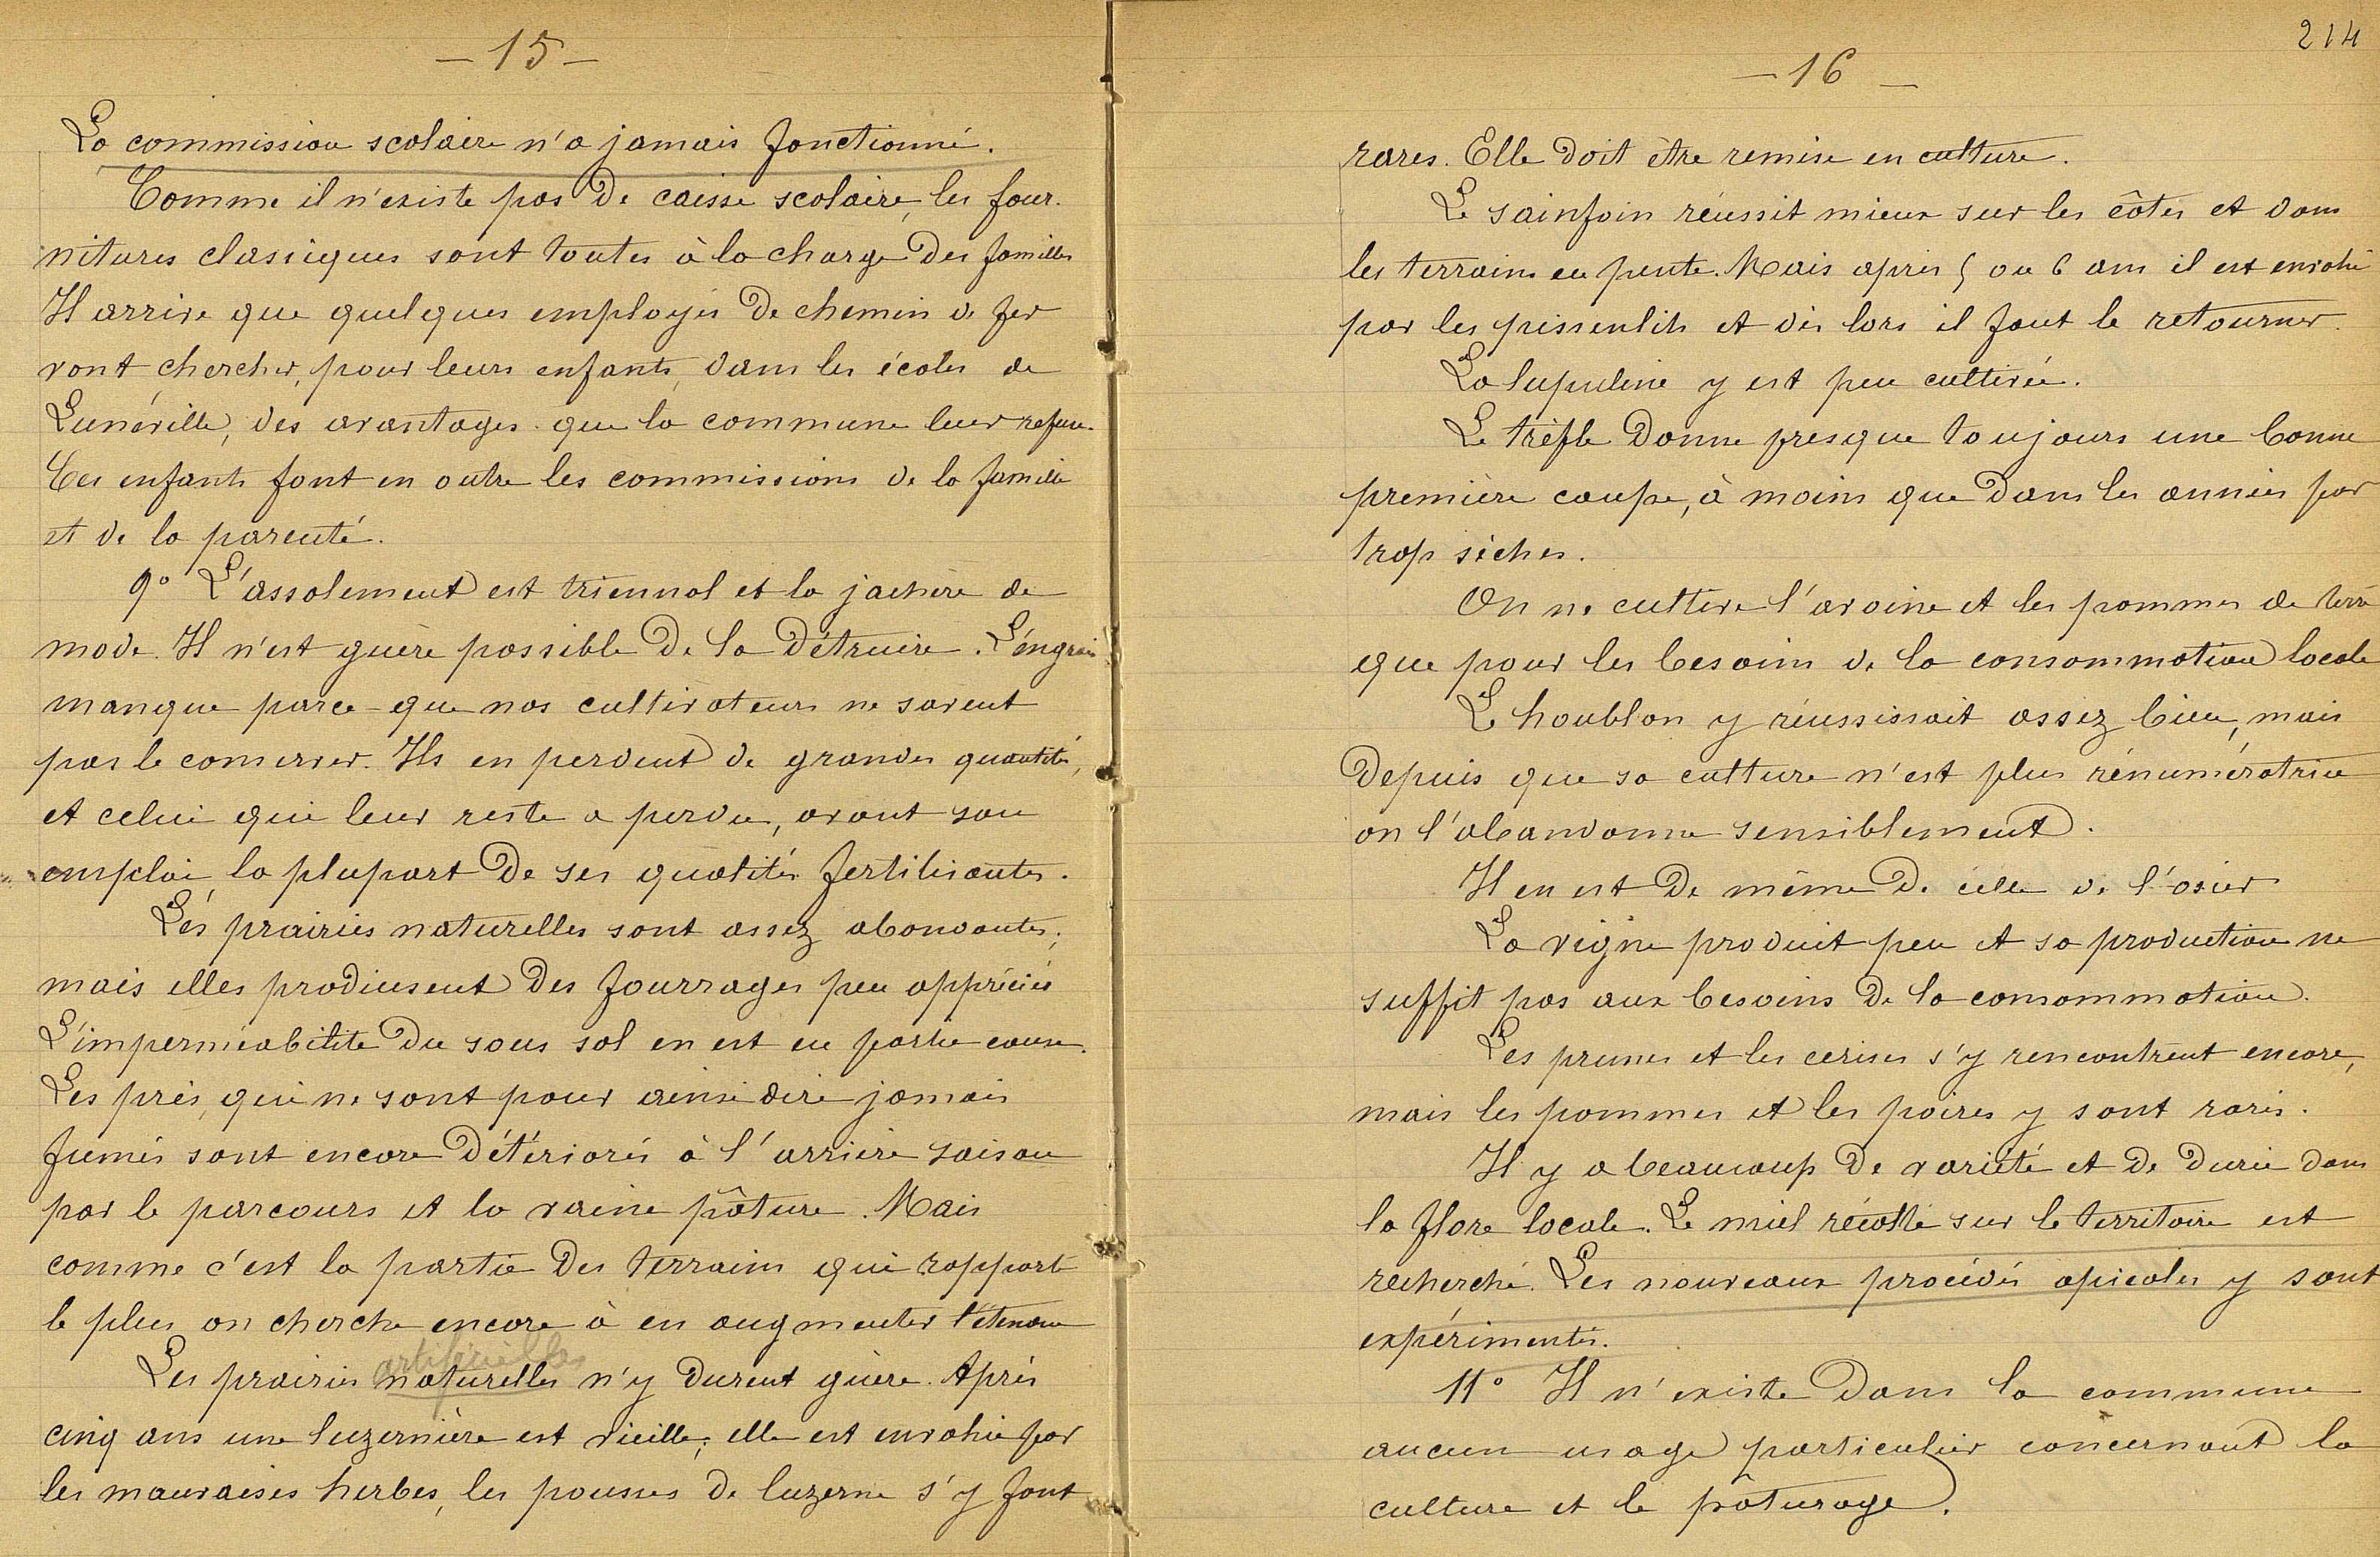 — 15 —
La commission scolaire n'a jamais fonctionné.
Comme il n'existe pas de caisse scolaire, les four-
nitures classiques sont toutes à la charge des familles
Il arrive que quelques employés de chemin de fer
vont chercher, pour leurs enfants, dans les écoles de
Lunéville, des avantages que la commune leur refuse.
Ces enfants font en outre les commissions de la famille
et de la parenté.
9° L'assolement est triennal et la jachère de
mode. Il n'est guère possible de la détruire. L'engrais
manque parce que nos cultivateurs ne savent
pas le conserver. Ils en perdent de grandes quantités,
et celui qui leur reste a perdu, avant son
emploi, la plupart de ses qualités fertilisantes.
Les prairies naturelles sont assez abondantes;
mais elles produisent des fourrages peu appréciés
L'imperméabilité du sous sol en est en partie cause.
Les prés, qui ne sont pour ainsi dire jamais
fumés sont encore détériorés à l'arrière saison
par le parcours et la vaine pâture. Mais
comme c'est la partie des terrains qui rapporte
le plus on cherche encore à en augmenter l'étendue
artificielles
Les prairies naturelles n'y durent guère. Après
cinq ans une luzernière est vieille; elle est envahie par
les mauvaises herbes, les pousses de luzerne s'y font
214
— 16 —
rares. Elle doit être remise en culture.
Le sainfoin réussit mieux sur les côtes et dans
les terrains en pente. Mais après 5 ou 6 ans il est envahi
par les pissenlits et dès lors il faut le retourner.
La lupuline y est peu cultivée.
Le trèfle donne presque toujours une bonne
première coupe, à moins que dans les années par
trop sèches.
On ne cultive l'avoine et les pommes de terre
que pour les besoins de la consommation locale
Le houblon y réussissait assez bien, mais
depuis que sa culture n'est plus rénumératrice
on l'abandonne sensiblement.
Il en est de même de celle de l'osier
La vigne produit peu et sa production ne
suffit pas aux besoins de la consommation.
Les prunes et les cerises s'y rencontrent encore,
mais les pommes et les poires y sont rares.
Il y a beaucoup de variété et de durée dans
la flore locale. Le miel récolté sur le territoire est
recherché. Les nouveaux procédés apicoles y sont
expérimentés.
11° Il n'existe dans la commune
aucun usage particulier concernant la
culture et le pâturage.